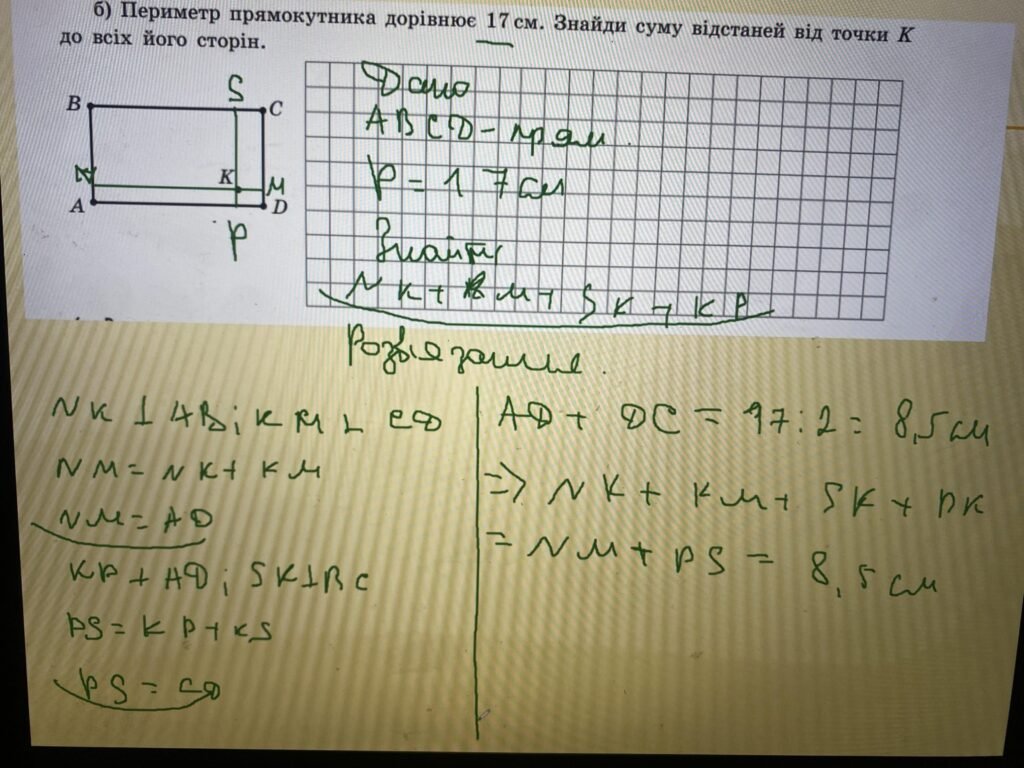 б) Периметр прямокутника дорівнює 17 см. Знайди суму відстаней від точки K
до всіх його сторін.
S
B
C
N
K
M
A
D
P
Дано
ABCD - прям.
P = 17см
Знайти
NK + KM + SK + KP
Розвязання.
NK ⊥ AB; KM ⊥ CD
NM = NK + KM
NM = AD
KP + AD; SK ⊥ BC
PS = KP + KS
PS = CD
AD + DC = 17 : 2 = 8,5 см
=> NK + KM + SK + PK
= NM + PS = 8,5 см